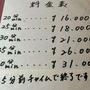 料金表
20分 min ‥‥ ¥16.000
25分 min ‥‥ ¥18.000
40分 min ‥‥ ¥21.000
50分 min ‥‥ ¥26.000
60分 min ‥‥ ¥31.000
5分前チャイムで終了です